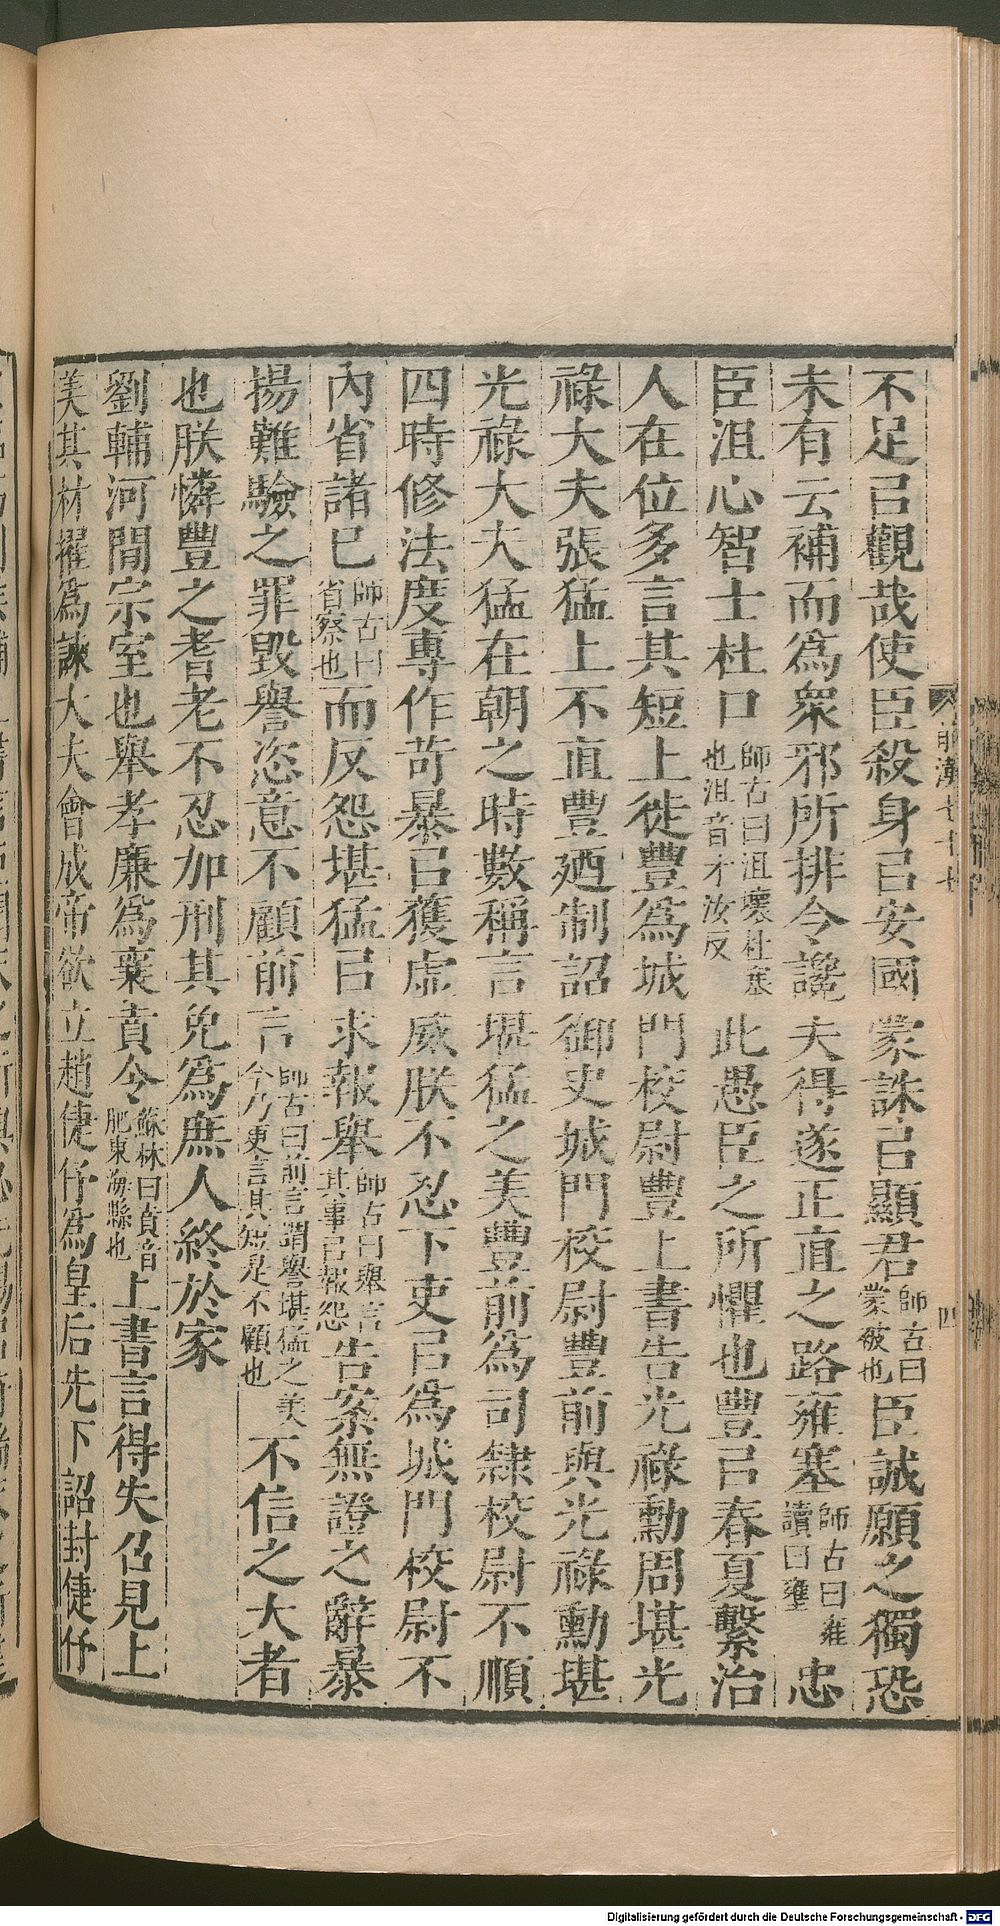 不足㠯觀哉使臣殺身㠯安國蒙誅㠯顯君師古曰�被也臣誠願之獨恐
未有云補而爲衆邪所排令讒夫得遂正直之路雍塞師古曰雍讀曰壅忠
臣沮心智士杜口師古曰沮壞杜塞也沮音才汝反此愚臣之所懼也豐㠯春夏繫治
人在位多言其短上徙豐爲城門校尉豐上書告光祿勳周堪光
祿大夫張猛上不直豐廼制詔御史城門校尉豐前與光祿勳堪
光祿大夫猛在朝之時數稱言堪猛之美豐前爲司隸校尉不順
四時修法度專作苛暴㠯獲虛威朕不忍下吏㠯爲城門校尉不
內省諸已師古曰省察也而反怨堪猛㠯求報舉師古曰舉言其事㠯報怨告案無證之辭暴
揚難驗之罪毀譽恣意不顧前言師古曰前言謂譽堪猛之美今乃更言其短是不顧也不信之大者
也朕憐豐之耆老不忍加刑其免爲庶人終於家
劉輔河間宗室也舉孝廉爲襄賁令蘇林曰賁音肥東海縣也上書言得失召見上
美其材擢爲諫大夫會成帝欲立趙倢伃爲皇后先下詔封倢伃
前漢七十七
四
Digitalisierung gefördert durch die Deutsche Forschungsgemeinschaft - DFG